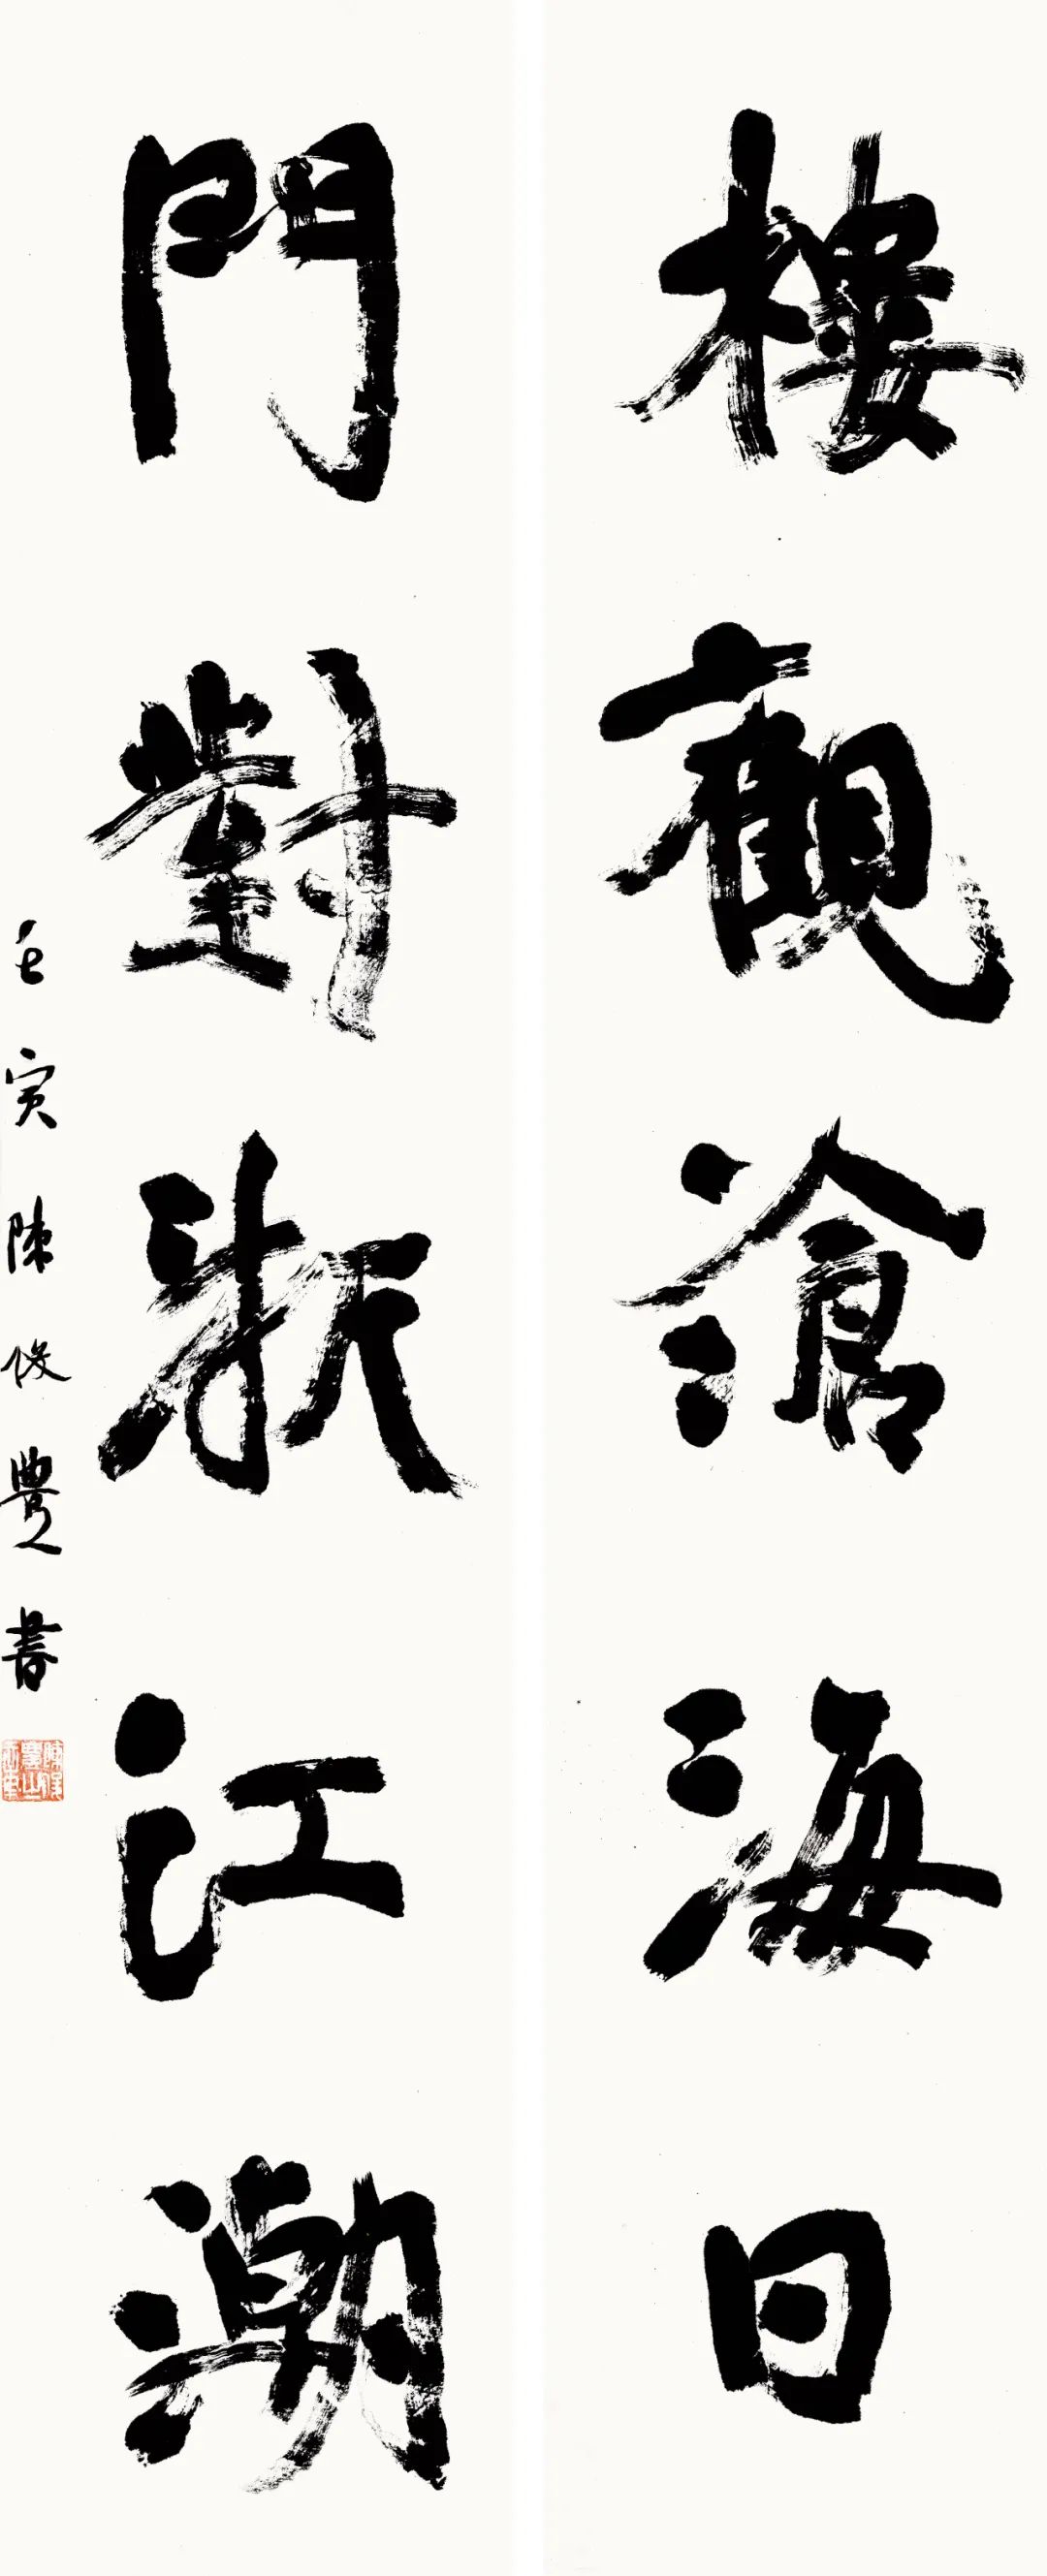 樓觀滄海日
門對浙江潮
壬寅陳俊豐書